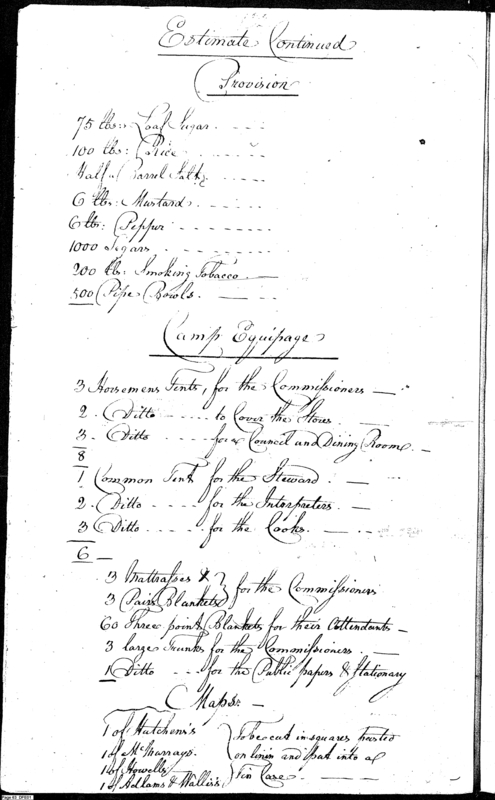 Estimate Continued
Provision
75 lbs: Loaf Sugar
100 lbs: Rice
Half a Barrel Salt
6 lbs: Mustard
6 lbs: Pepper
1000 Sigars
200 lbs: Smoking Tobacco
500 Pipe Bowls
Camp Equipage
3 Horsemens Tents, for the Commissioners
2 Ditto to Cover the Stores
3 Ditto for a Council and Dining Room
8
1 Common Tent for the Steward
2 Ditto for the Interpreters
3 Ditto for the Cooks
6
3 Mattrasses & } for the Commissioners
3 Pairs Blankets
60 Three point Blankets for their Attendants
3 large Trunks for the Commissioners
1 Ditto for the Public papers & Stationary
Maps
1 of Hutchens's } To be cut in squares
1 of McMurrays on linin and put into a
1 of Howells Tin Case
1 of Adlams & Wallis's